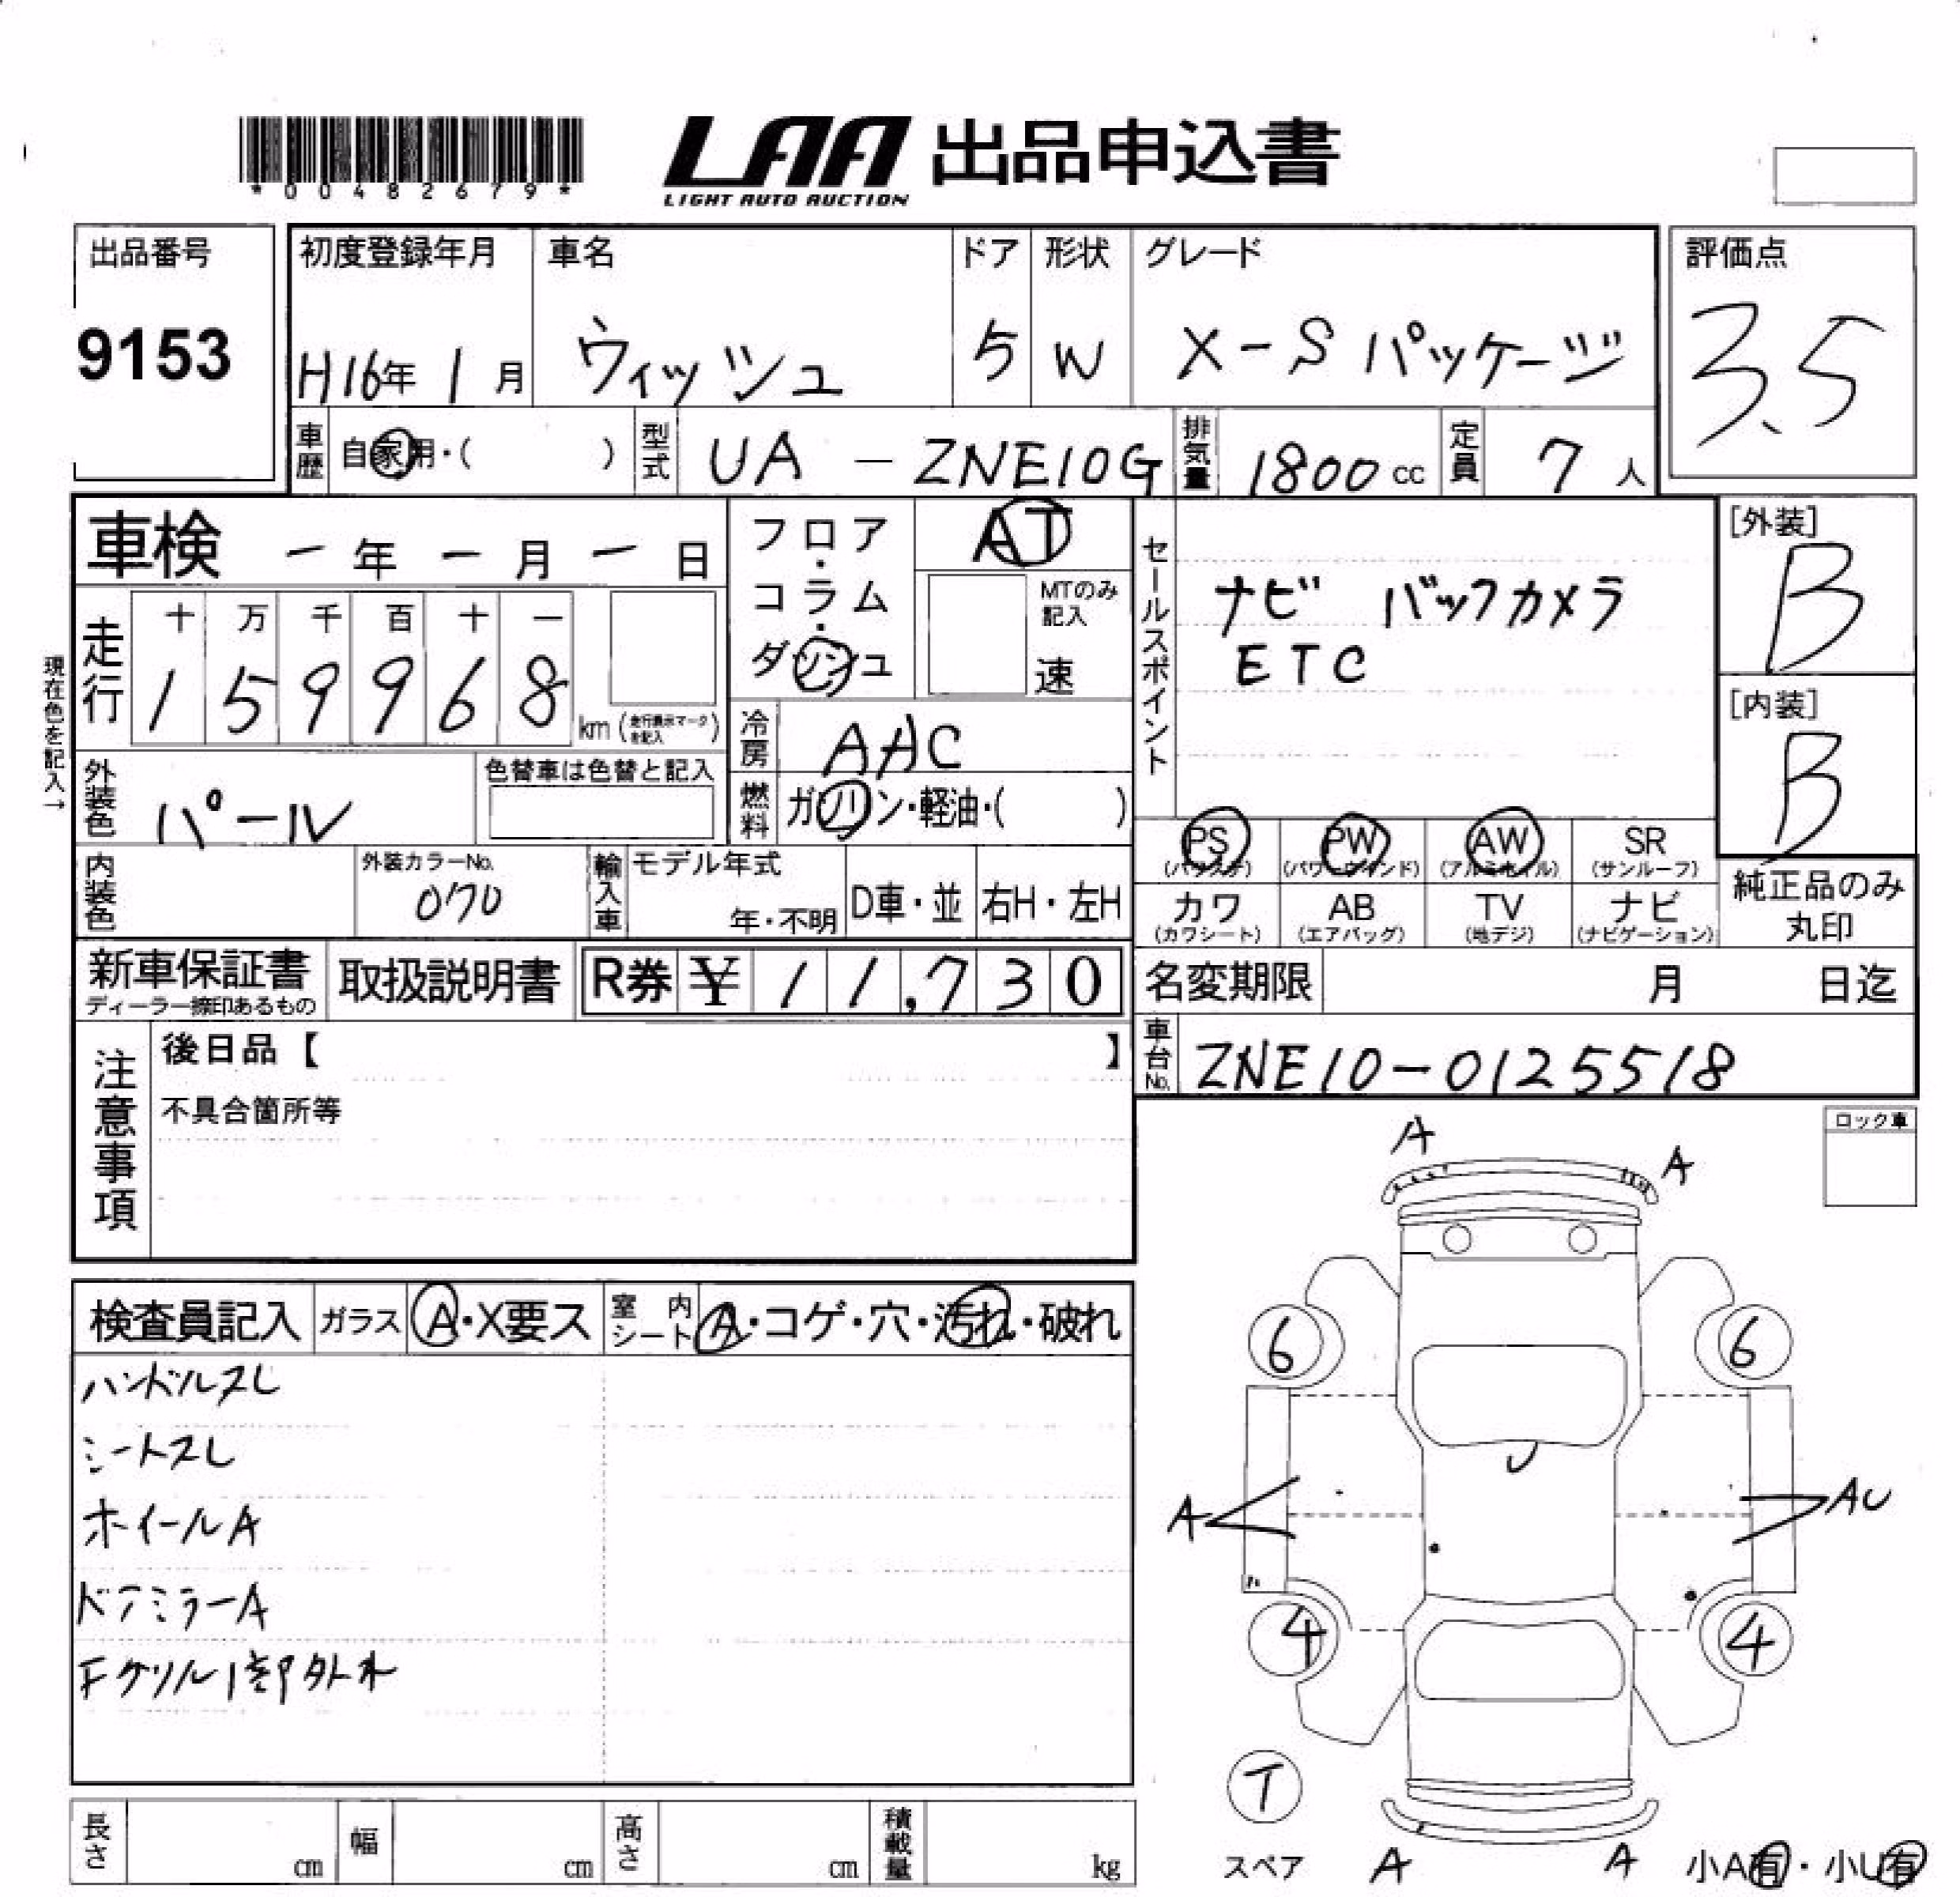 *00482679*
LAA 出品申込書
LIGHT AUTO AUCTION
出品番号
9153
初度登録年月
H16年 1月
車名
ウィッシュ
ドア
5
形状
W
グレード
X-Sパッケージ
評価点
3.5
車歴 自家用・( )
型式 UA-ZNE10G
排気量 1800cc
定員 7人
車検 ー年 ー月 ー日
フロア・コラム・ダッシュ
AT
MTのみ記入
速
セールスポイント
ナビ バックカメラ
ETC
[外装]
B
[内装]
B
現在色を記入→
走行
十 万 千 百 十 一
1 5 9 9 6 8 km (走行表示マークを記入)
冷房 AAC
燃料 ガソリン・軽油・( )
外装色 パール
色替車は色替と記入
PS (パワステ)
PW (パワーウインド)
AW (アルミホイル)
SR (サンルーフ)
カワ (カワシート)
AB (エアバッグ)
TV (地デジ)
ナビ (ナビゲーション)
純正品のみ丸印
内装色
外装カラーNo.
070
輸入車
モデル年式
年・不明
D車・並
右H・左H
新車保証書
ディーラー捺印あるもの
取扱説明書
R券 ¥11,730
名変期限 月 日迄
車台No. ZNE10-0125518
注意事項
後日品【 】
不具合箇所等
ロック車
検査員記入
ガラス A・X要ス
室内シート A・コゲ・穴・汚れ・破れ
ハンドルスレ
シートスレ
ホイールA
ドアミラーA
Fグリル1部外れ
A
A
6
6
U
A
AU
4
4
T
スペア
A
A
小A有・小U有
長さ cm
幅 cm
高さ cm
積載量 kg